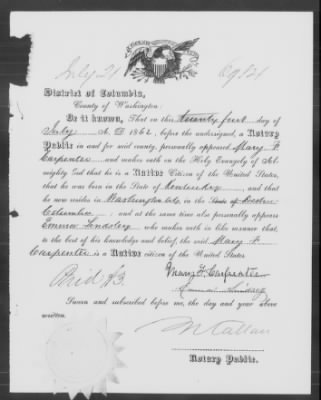 July 21
District of Columbia,
County of Washington:
Be it known, That on this twenty first day of
July A. D. 1862, before the undersigned, a Notary
Public in and for said county, personally appeared Mary F
Carpenter and maketh oath on the Holy Evangely of Al-
mighty God that he is a Native Citizen of the United States,
that he was born in the State of Kentucky, and that
he now resides in Washington City, in the State of
Columbia; and at the same time also personally appears
Emma Lindsley who maketh oath in like manner that,
to the best of his knowledge and belief, the said Mary F
Carpenter is a Native citizen of the United States.
Mary F Carpenter
Emma Lindsley
Sworn and subscribed before me, the day and year above
written.
N Callan
Notary Public.